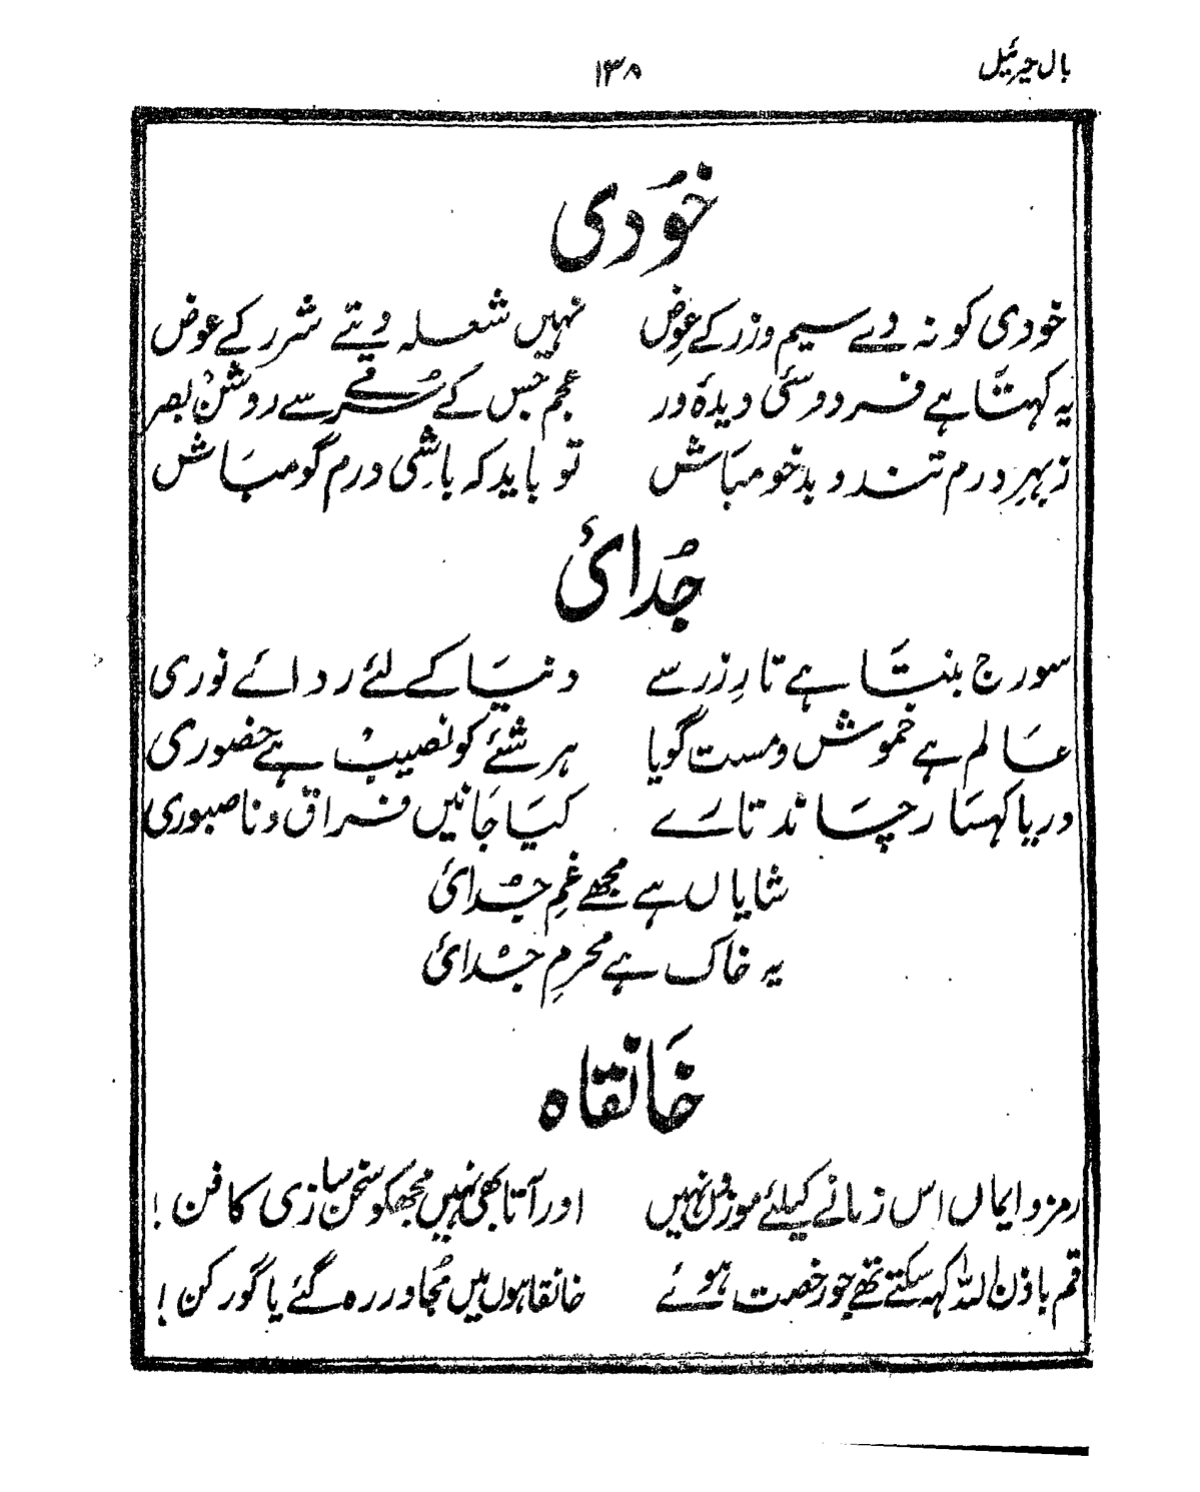 بال جبرئیل
۱۳۸
خُودی
خودی کو نہ دے سیم و زر کے عوِض نہیں شعلہ دیتے شرر کے عوض
یہ کہتا ہے فردوسیٔ دیدہ ور عجم جس کے سُرمے سے روشن بصر
زبہرِ درم تند و بدخو مباش تو باید کہ باشِی درم گو مباش
جُدائی
سورج بنتا ہے تارِ زر سے دنیا کے لئے ردائے نوری
عالم ہے خموش و مست گویا ہر شئے کو نصیب ہے حضوری
دریا کہسار چاند تارے کیا جانیں فراق و ناصبوری
شایاں ہے مجھے غمِ جدائی
یہ خاک ہے محرمِ جُدائی
خانقاہ
رمز و ایماں اس زمانے کیلئے موزوں نہیں اور آتا بھی نہیں مجھکو سخن سازی کا فن !
قم باذن اللہ کہہ سکتے تھے جو رخصت ہوئے خانقاہوں میں مُجاور رہ گئے یا گورکن !